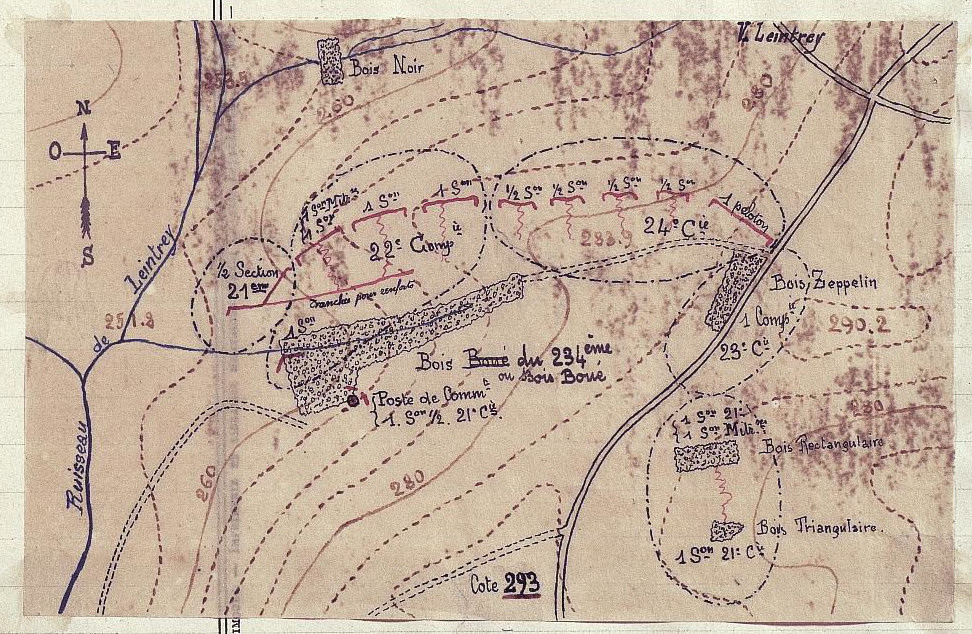 V. Leintrey
253.5
Bois Noir
260
280
N
O E
S
1 Son Mitses
1 Son
1 Son
1 Son
½ Son
½ Son
½ Son
½ Son
1 peloton
22e Compie
283.9
24e Cie
½ Section
21eme
tranchée pour renforts
Bois Zeppelin
Leintrey
251.2
de
1 Son
1 Compie
290.2
23e Cie
Bois Boué du 234ème
ou Bois Boué
Poste de Commt
1. Son ½. 21e Cie
280
1 Son 21e
1 Son Mitses
Bois Rectangulaire
260
280
Ruisseau
Bois Triangulaire.
1 Son 21e Cie
Cote 293